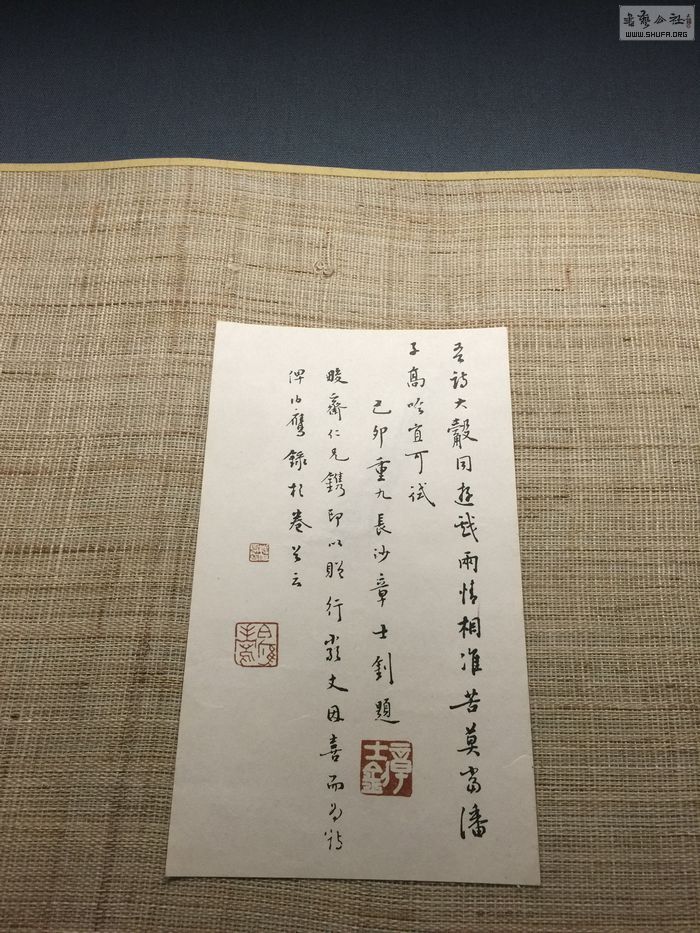 吾詩大觳同遊戲兩情相准苦莫當潘
子高吟宜可試
己卯重九長沙章士釗題
章士釗
畯齋仁兄鐫印以贈行嚴丈因喜而為詩
俾伯鷹錄於卷云
書藝公社
WWW.SHUFA.ORG